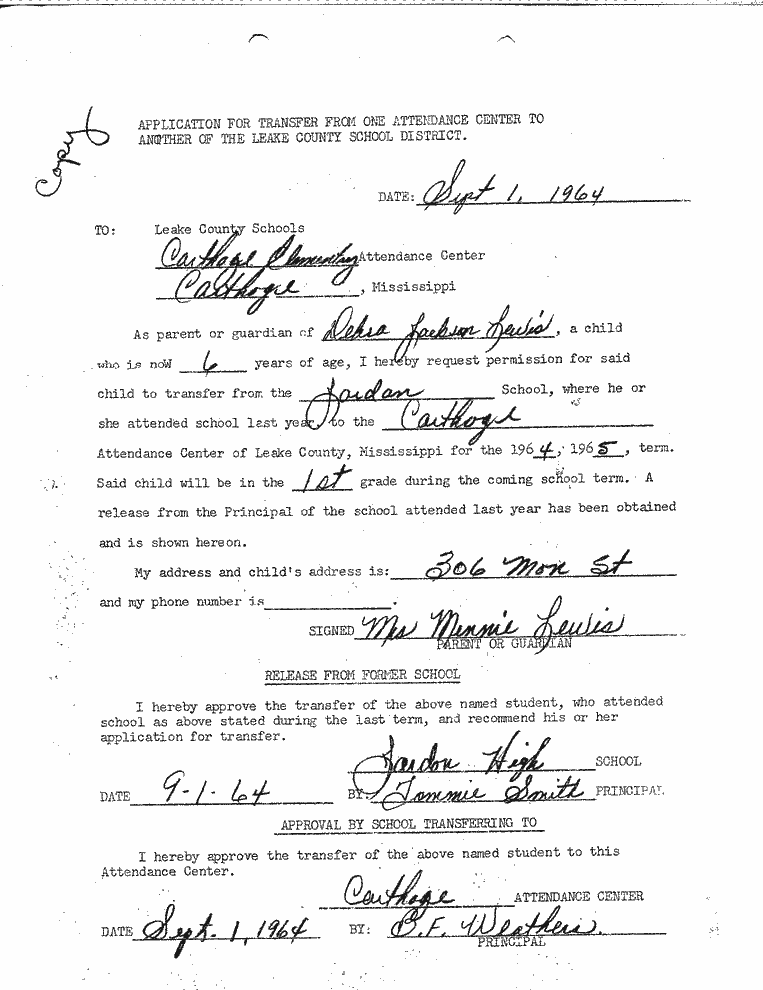 Copy
APPLICATION FOR TRANSFER FROM ONE ATTENDANCE CENTER TO
ANOTHER OF THE LEAKE COUNTY SCHOOL DISTRICT.
DATE: Sept 1, 1964
TO: Leake County Schools
Carthage Elementry Attendance Center
Carthage, Mississippi
As parent or guardian of Debra Jackson Lewis, a child
who is now 6 years of age, I hereby request permission for said
child to transfer from the Jordan School, where he or
she attended school last year, to the Carthage
Attendance Center of Leake County, Mississippi for the 1964, 1965, term.
Said child will be in the 1st grade during the coming school term. A
release from the Principal of the school attended last year has been obtained
and is shown hereon.
My address and child's address is: 306 Mon St
and my phone number is .
SIGNED Mrs Minnie Lewis
PARENT OR GUARDIAN
RELEASE FROM FORMER SCHOOL
I hereby approve the transfer of the above named student, who attended
school as above stated during the last term, and recommend his or her
application for transfer.
Jordon High SCHOOL
DATE 9-1-64 BY: Tommie Smith PRINCIPAL
APPROVAL BY SCHOOL TRANSFERRING TO
I hereby approve the transfer of the above named student to this
Attendance Center.
Carthage ATTENDANCE CENTER
DATE Sept. 1, 1964 BY: B.F. Weathers.
PRINCIPAL